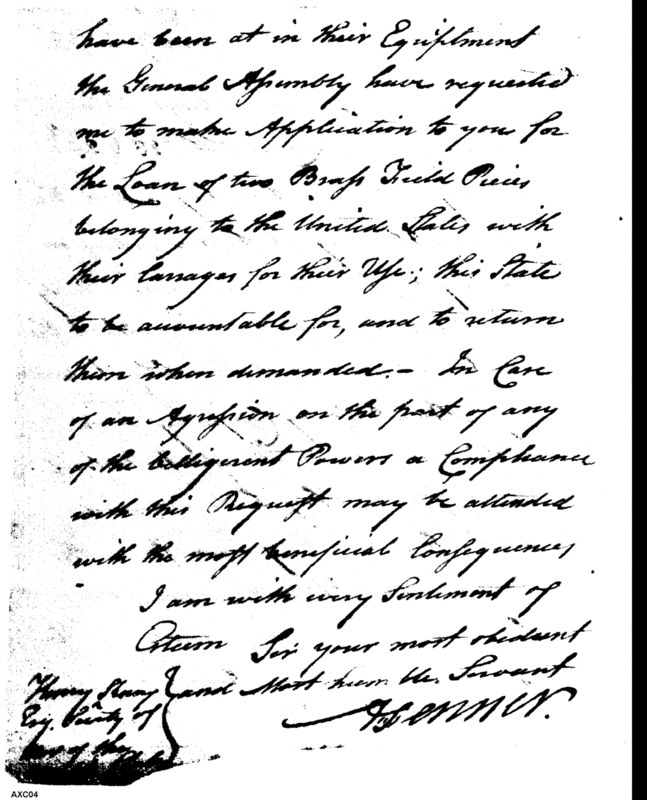 have been at in their Equiptment
the General Assembly have requested
me to make Application to you for
the Loan of two Brass Field Pieces
belonging to the United States with
their Carrages for their Use; this State
to be accountable for, and to return
them when demanded.— In Case
of an Agression on the part of any
of the belligerent Powers a Compliance
with this Request may be attended
with the most beneficial Consequences
I am with every Sentiment of
Esteem Sir your most obedient
and Most humble Servant
A Fenner.
Henry Knox
Esq. Secty of
War of the
AXC04